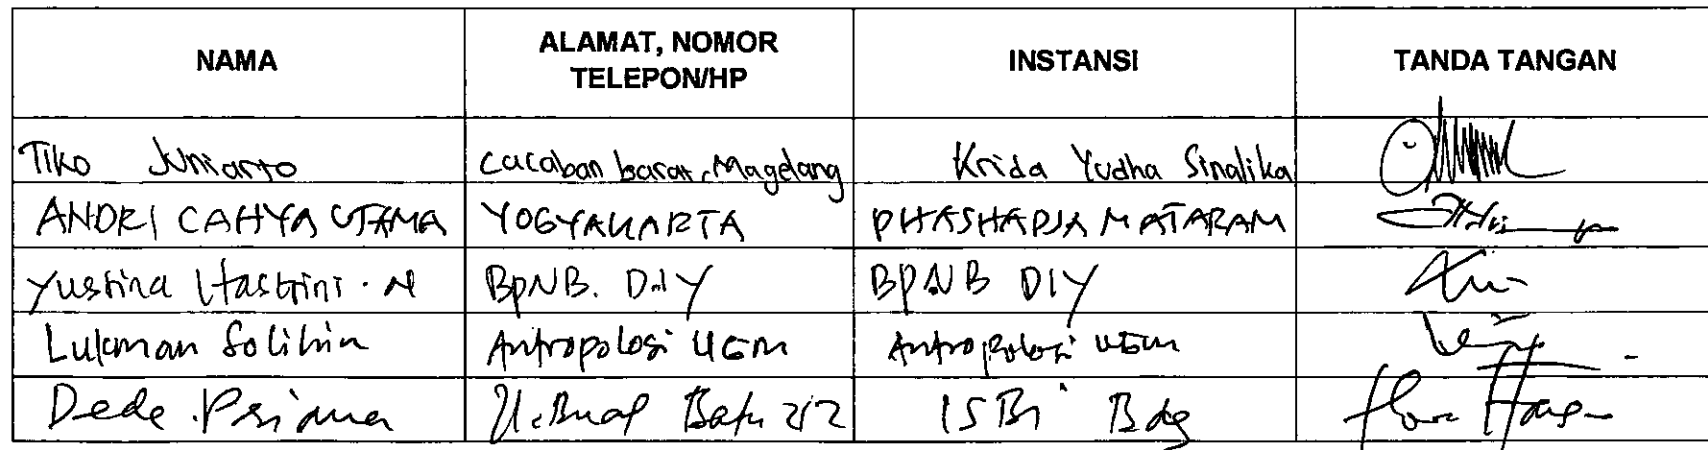 NAMA
ALAMAT, NOMOR
TELEPON/HP
INSTANSI
TANDA TANGAN
Tiko Juniarto Cacaban barat, Magelang Krida Yudha Sinalika
ANDRI CAHYA UTAMA YOGYAKARTA MATARAM
Yustina Hastrini . N BPNB. DIY BPNB DIY
Lukman Solihin Antropologi UGM Antropologi UGM
Dede Batu 212 ISBI Bdg